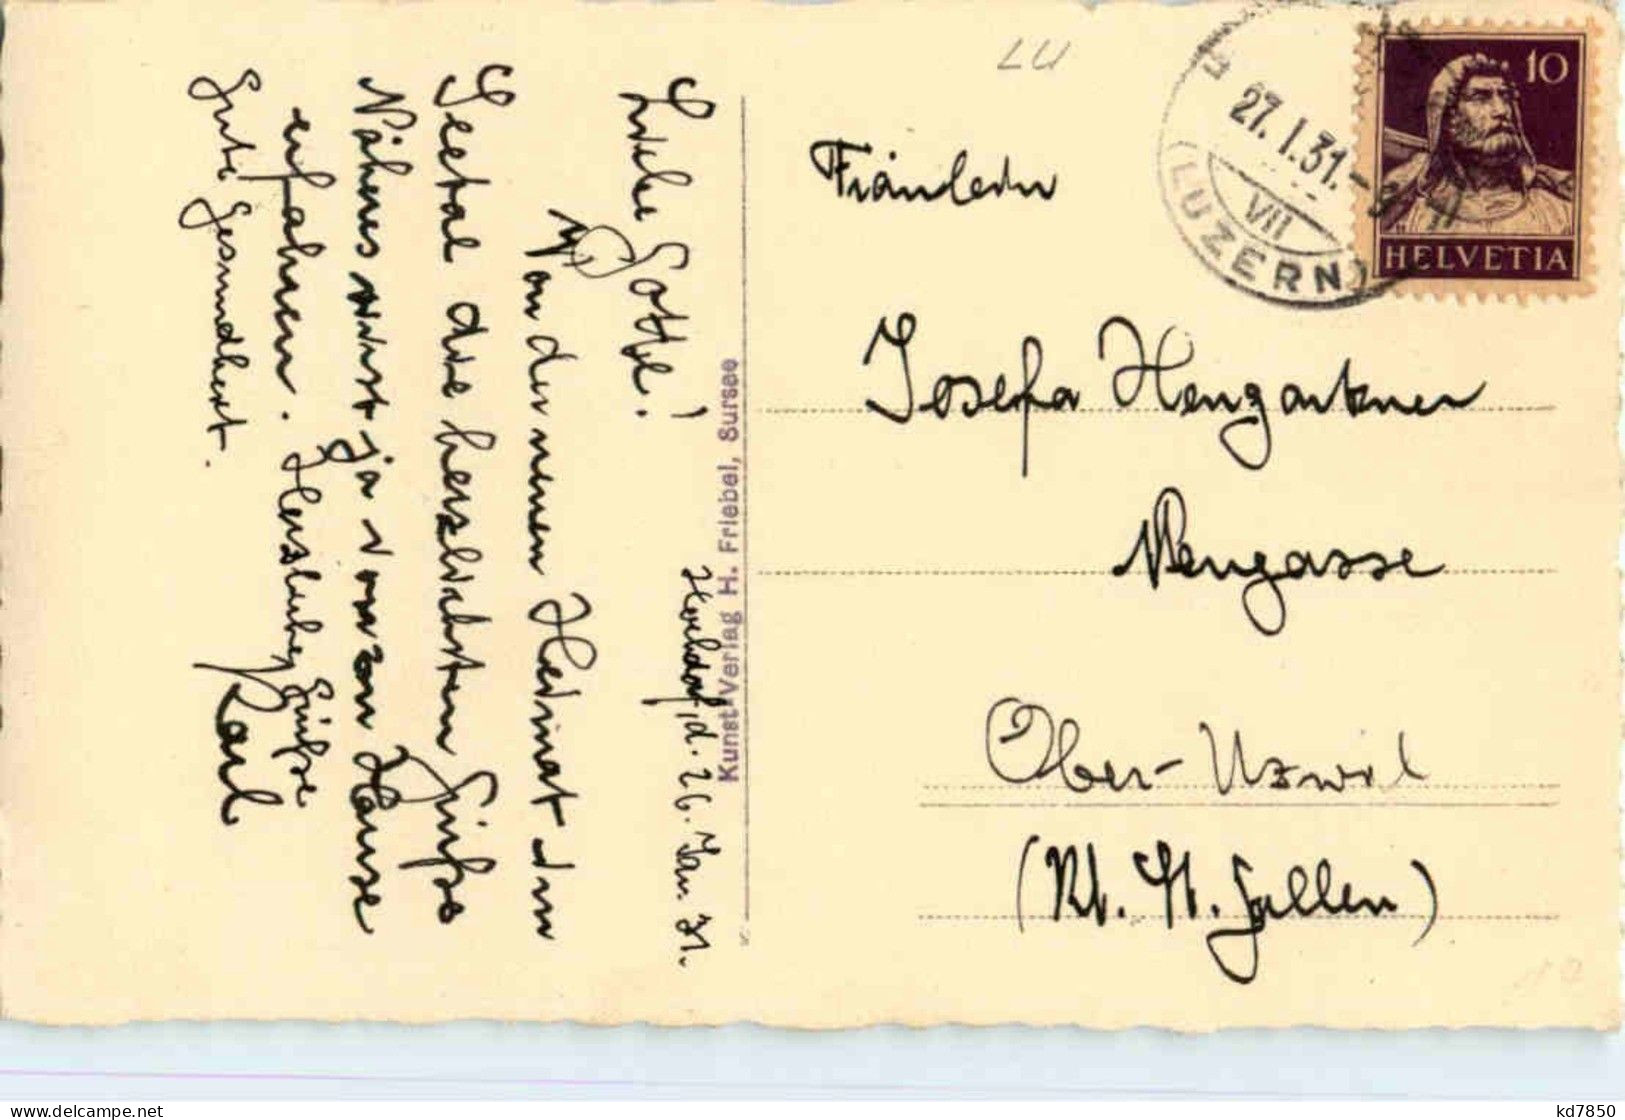 Hochdorf, d. 26. Jan. 31.
Liebe Gotte!
Von der neuen Heimat im
Seetal die herzlichsten Grüsse
Näheres wirst ja von zu Hause
erfahren. Herzliche Grüsse
Gute Gesundheit. Karl
Kunst-Verlag H. Friebel, Sursee
LU
27. I. 31.
VII
(LUZERN)
10
HELVETIA
Fräulein
Josefa Hengartner
Neugasse
Ober-Uzwil
(Kt. St. Gallen)
kd7850